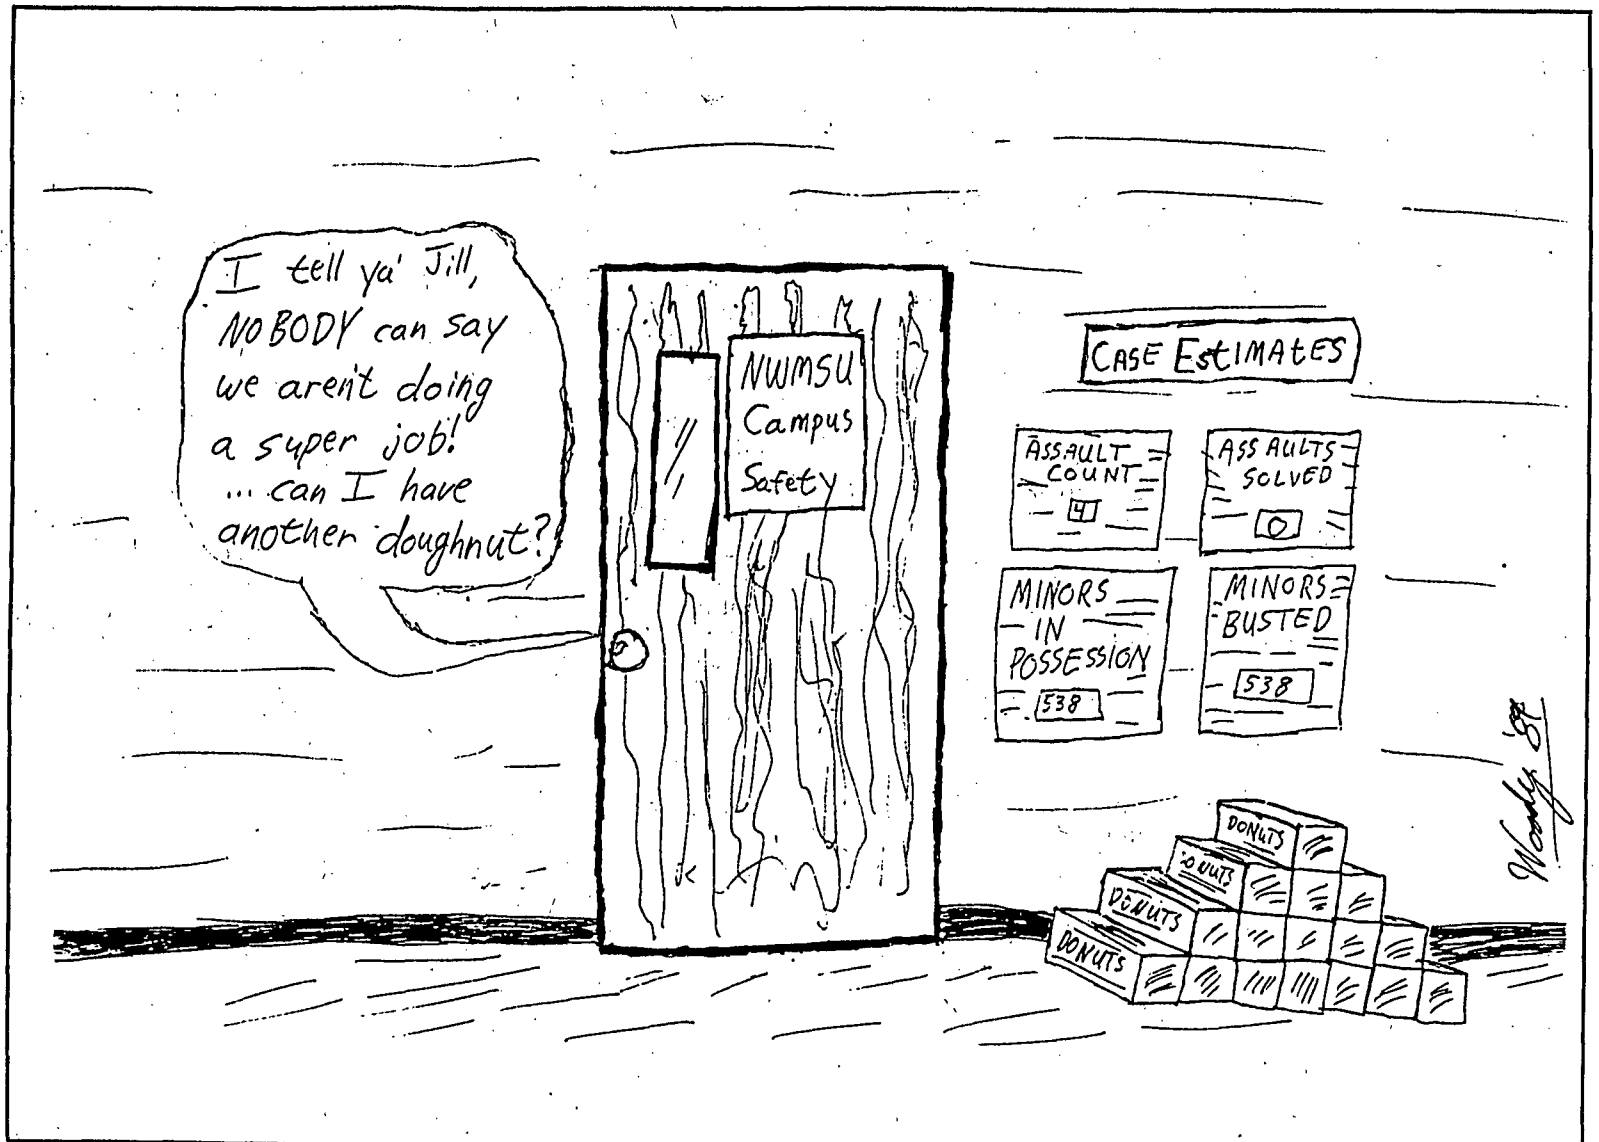 I tell ya' Jill,
NOBODY can say
we aren't doing
a super job!
... can I have
another doughnut?
NWMSU
Campus
Safety
CASE EStIMAtES
ASSAULT
COUNT
4
ASSAULTS
SOLVED
0
MINORS
IN
POSSESSION
538
MINORS
BUSTED
538
DONUTS
DONUTS
DONUTS
DONUTS
Woody '89